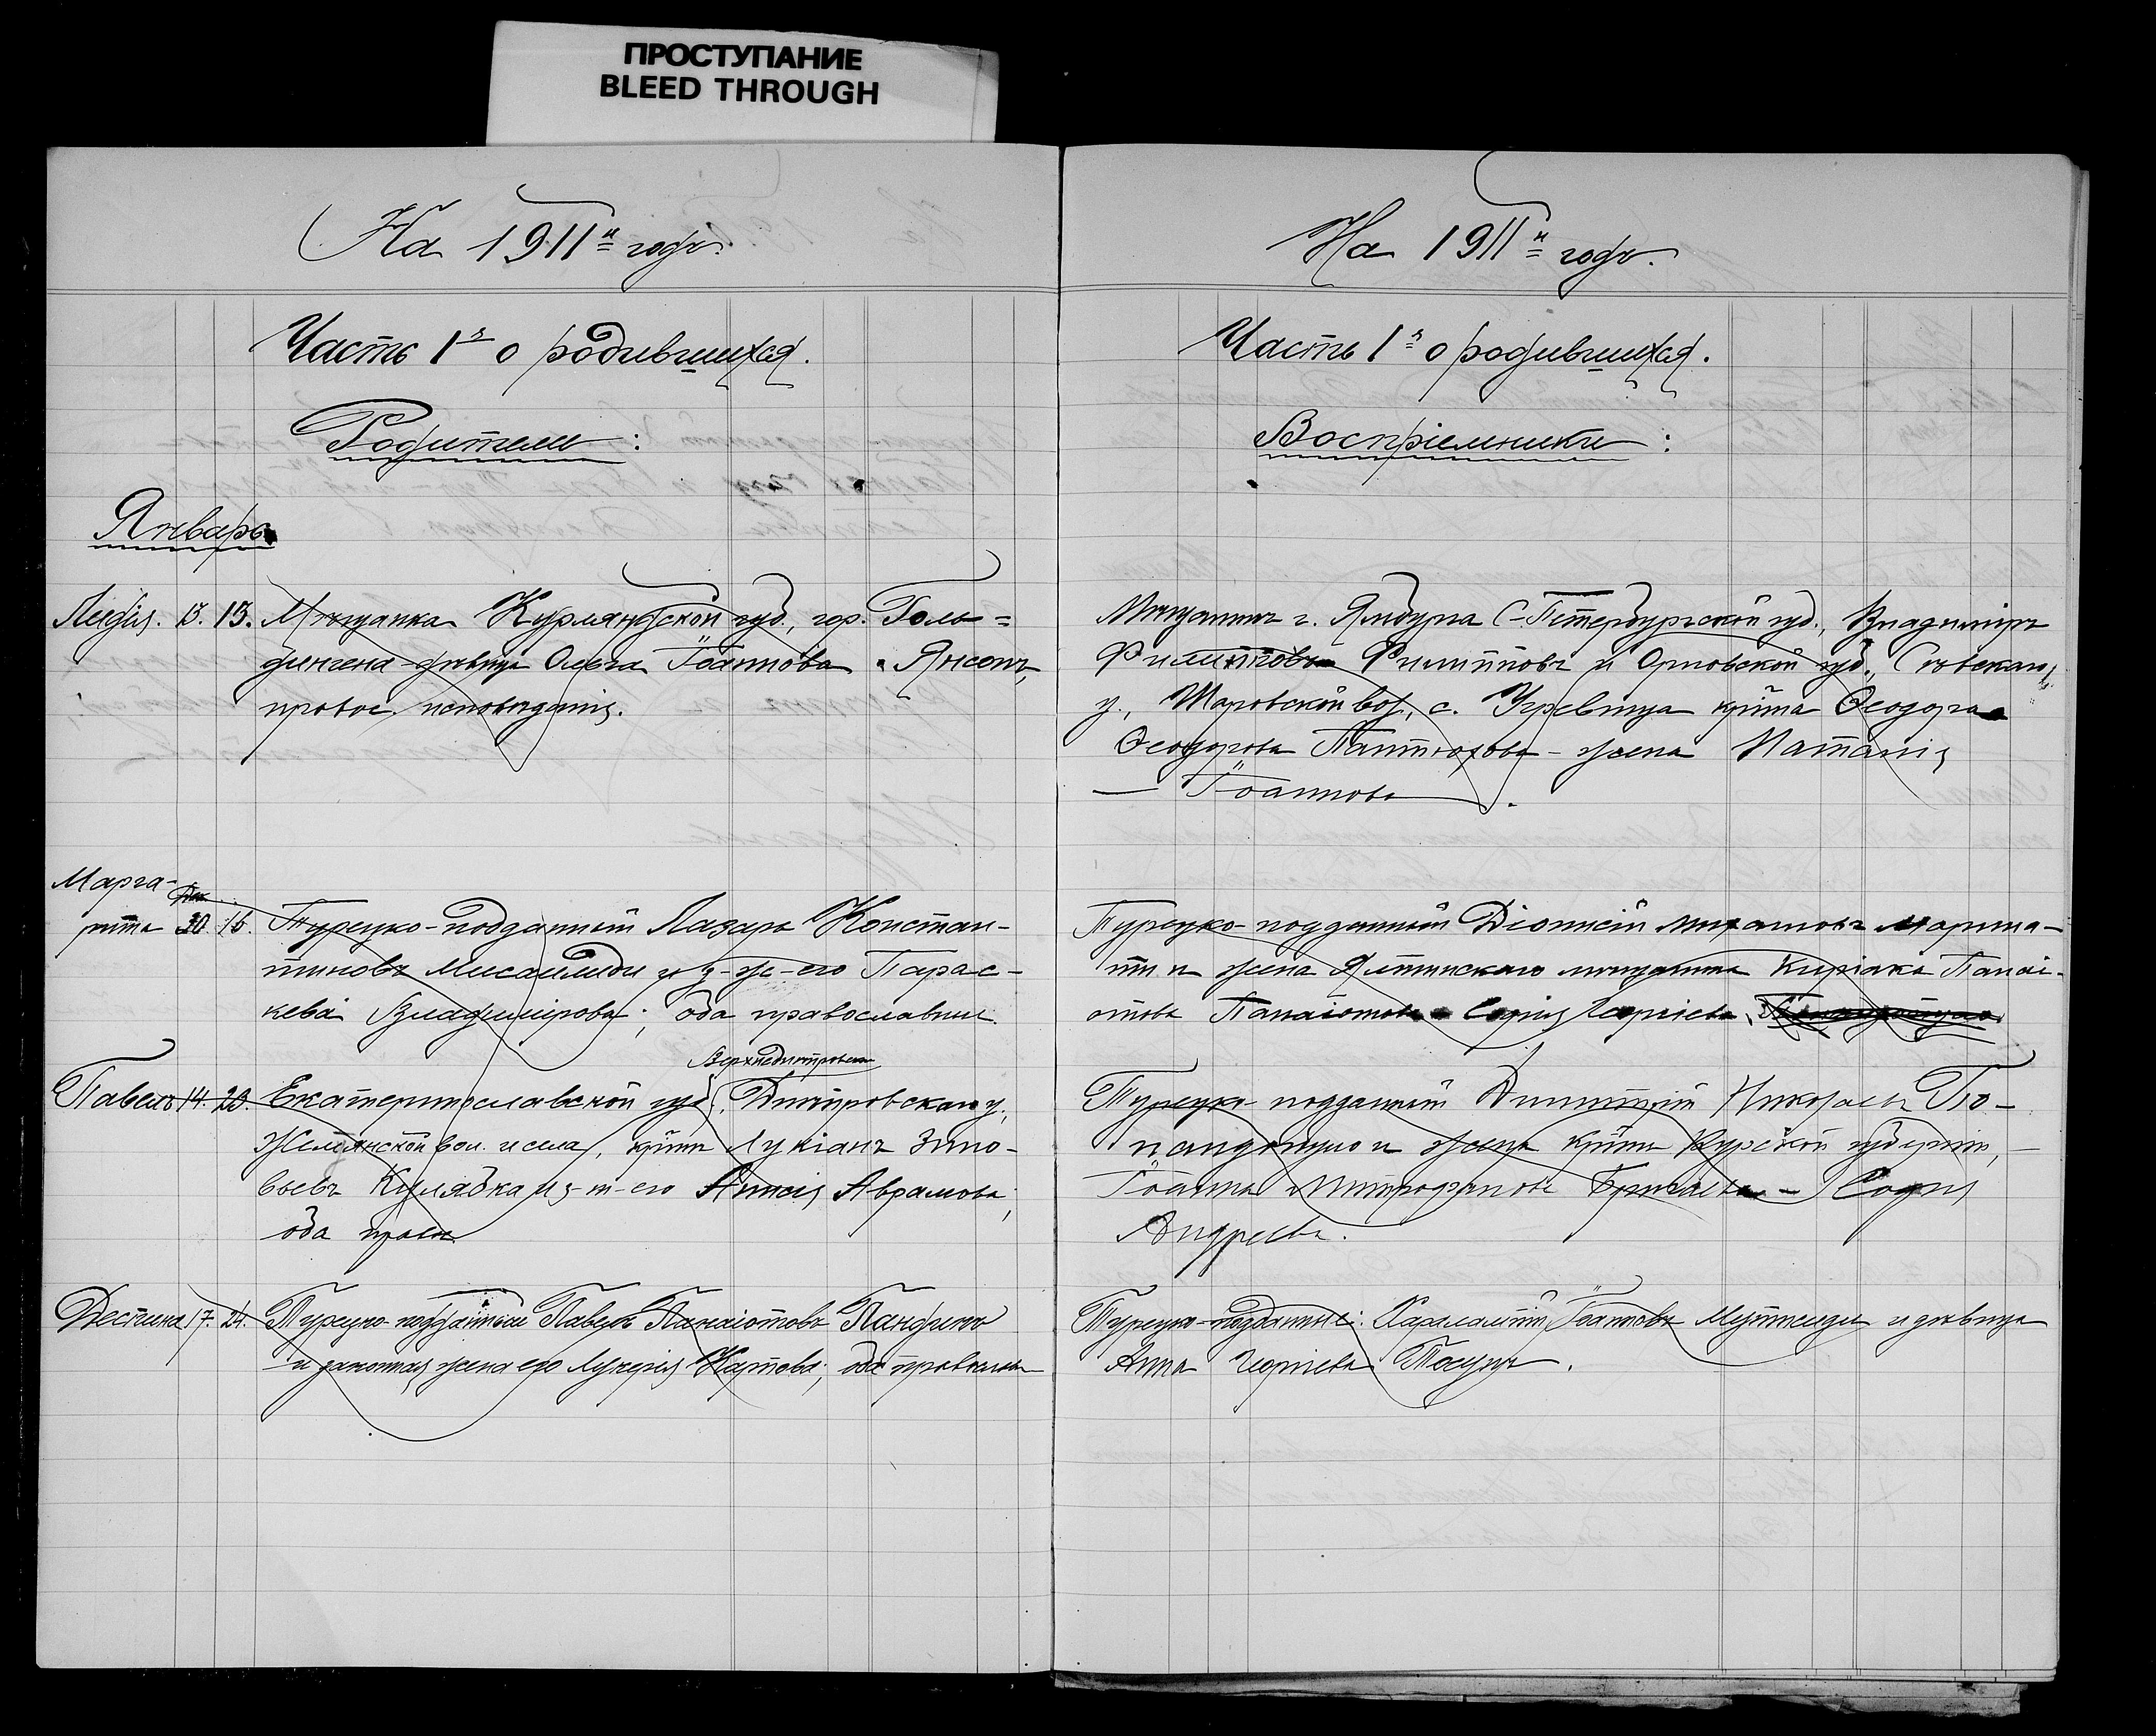 ПРОСТУПАНИЕ
BLEED THROUGH
На 1911й годъ.
Часть 1я о родившихся.
Родители:
Январь
Лидія. 13. 13. Мѣщанка Курляндской губ., гор. Голь=
дингена-дѣвица Ольга Іоаннова Янсонъ,
правос. исповѣданія.
Марга-
Дек.
рита 30 16. Турецко-подданный Лазарь Констан-
тиновъ Мисаилиди и з-ж-его Парас-
кева Владимірова; оба православные.
Верхнеднѣпровскаго
Павелъ 14. 23. Екатеринославской губ., Днѣпровскаго у.
вол. и села, кр-нъ Лукіанъ Зино-
вьевъ Кулябка и з-ж-его Аврамова;
оба правос.
Деспина 17. 24. Турецко-подданный Павелъ Панаіотовъ
и законная жена его Лукерія; оба православ.
На 1911й годъ.
Часть 1я о родившихся.
Воспріемники:
Мѣщанинъ г. Ямбурга С-Петербургской губ., Владиміръ
Филипповъ и Орловской губ., Сѣвскаго
у., Шаровской вол., с. Угревища кр-на Ѳеодора
Ѳеодорова Пантюхова - жена Наталія
Іоаннова.
Турецко-подданный Діонисій Михаиловъ
и жена Ялтинскаго мѣщанина Киріака Панаі-
отова Панаіотова Софія Георгіева
Турецко-подданный Димитрій Николаевъ
и жена кр-на Курской губерніи,
Іоанна Митрофанова - Софія
Андреева.
Турецко-подданные: Харлампій Іоанновъ и дѣвица
Анна Георгіева.